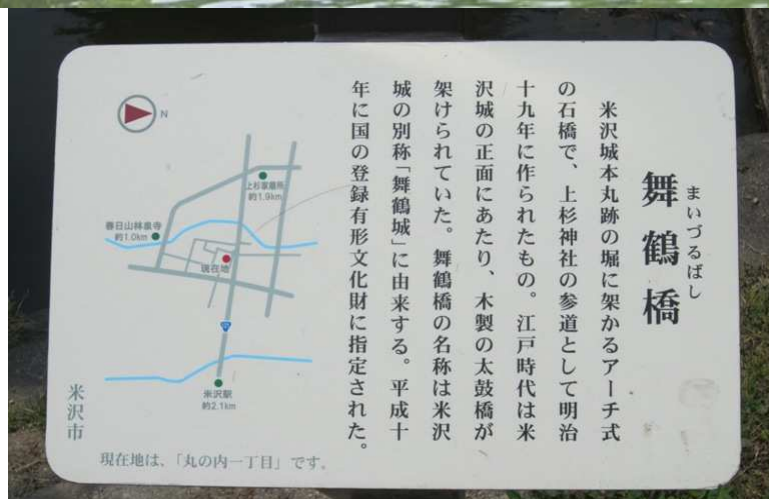 まいづるばし
舞鶴橋
米沢城本丸跡の堀に架かるアーチ式
の石橋で、上杉神社の参道として明治
十九年に作られたもの。江戸時代は米
沢城の正面にあたり、木製の太鼓橋が
架けられていた。舞鶴橋の名称は米沢
城の別称「舞鶴城」に由来する。平成十
年に国の登録有形文化財に指定された。
N
上杉家廟所
約1.9km
春日山林泉寺
約1.0km
現在地
米沢駅
約2.1km
米沢市
現在地は、「丸の内一丁目」です。